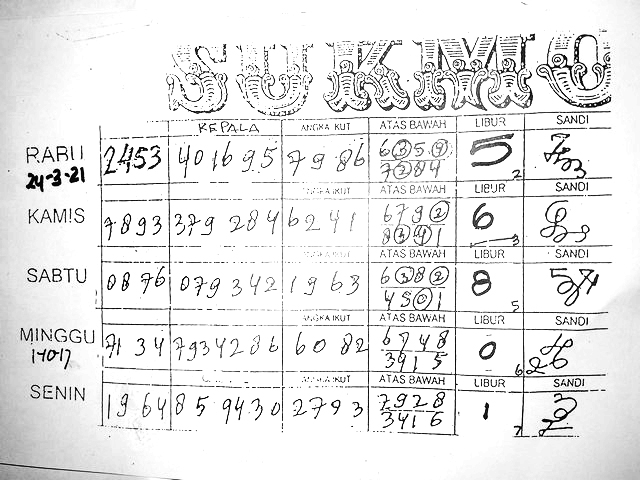 SUKMO
KEPALA ANGKA IKUT ATAS BAWAH LIBUR SANDI
RABU 2453 401695 7986 6359 5
24-3-21 7284 2
ANGKA IKUT ATAS BAWAH LIBUR SANDI
KAMIS 7893 379 284 6241 6792 6
8391 3
ATAS BAWAH LIBUR SANDI
SABTU 0876 079 342 1963 6382 8
4501 5
ANGKA IKUT ATAS BAWAH LIBUR SANDI
MINGGU 7134 7934286 6082 6748 0
3915 6
ATAS BAWAH LIBUR SANDI
SENIN 1964 859430 2793 7928 1
3416 7